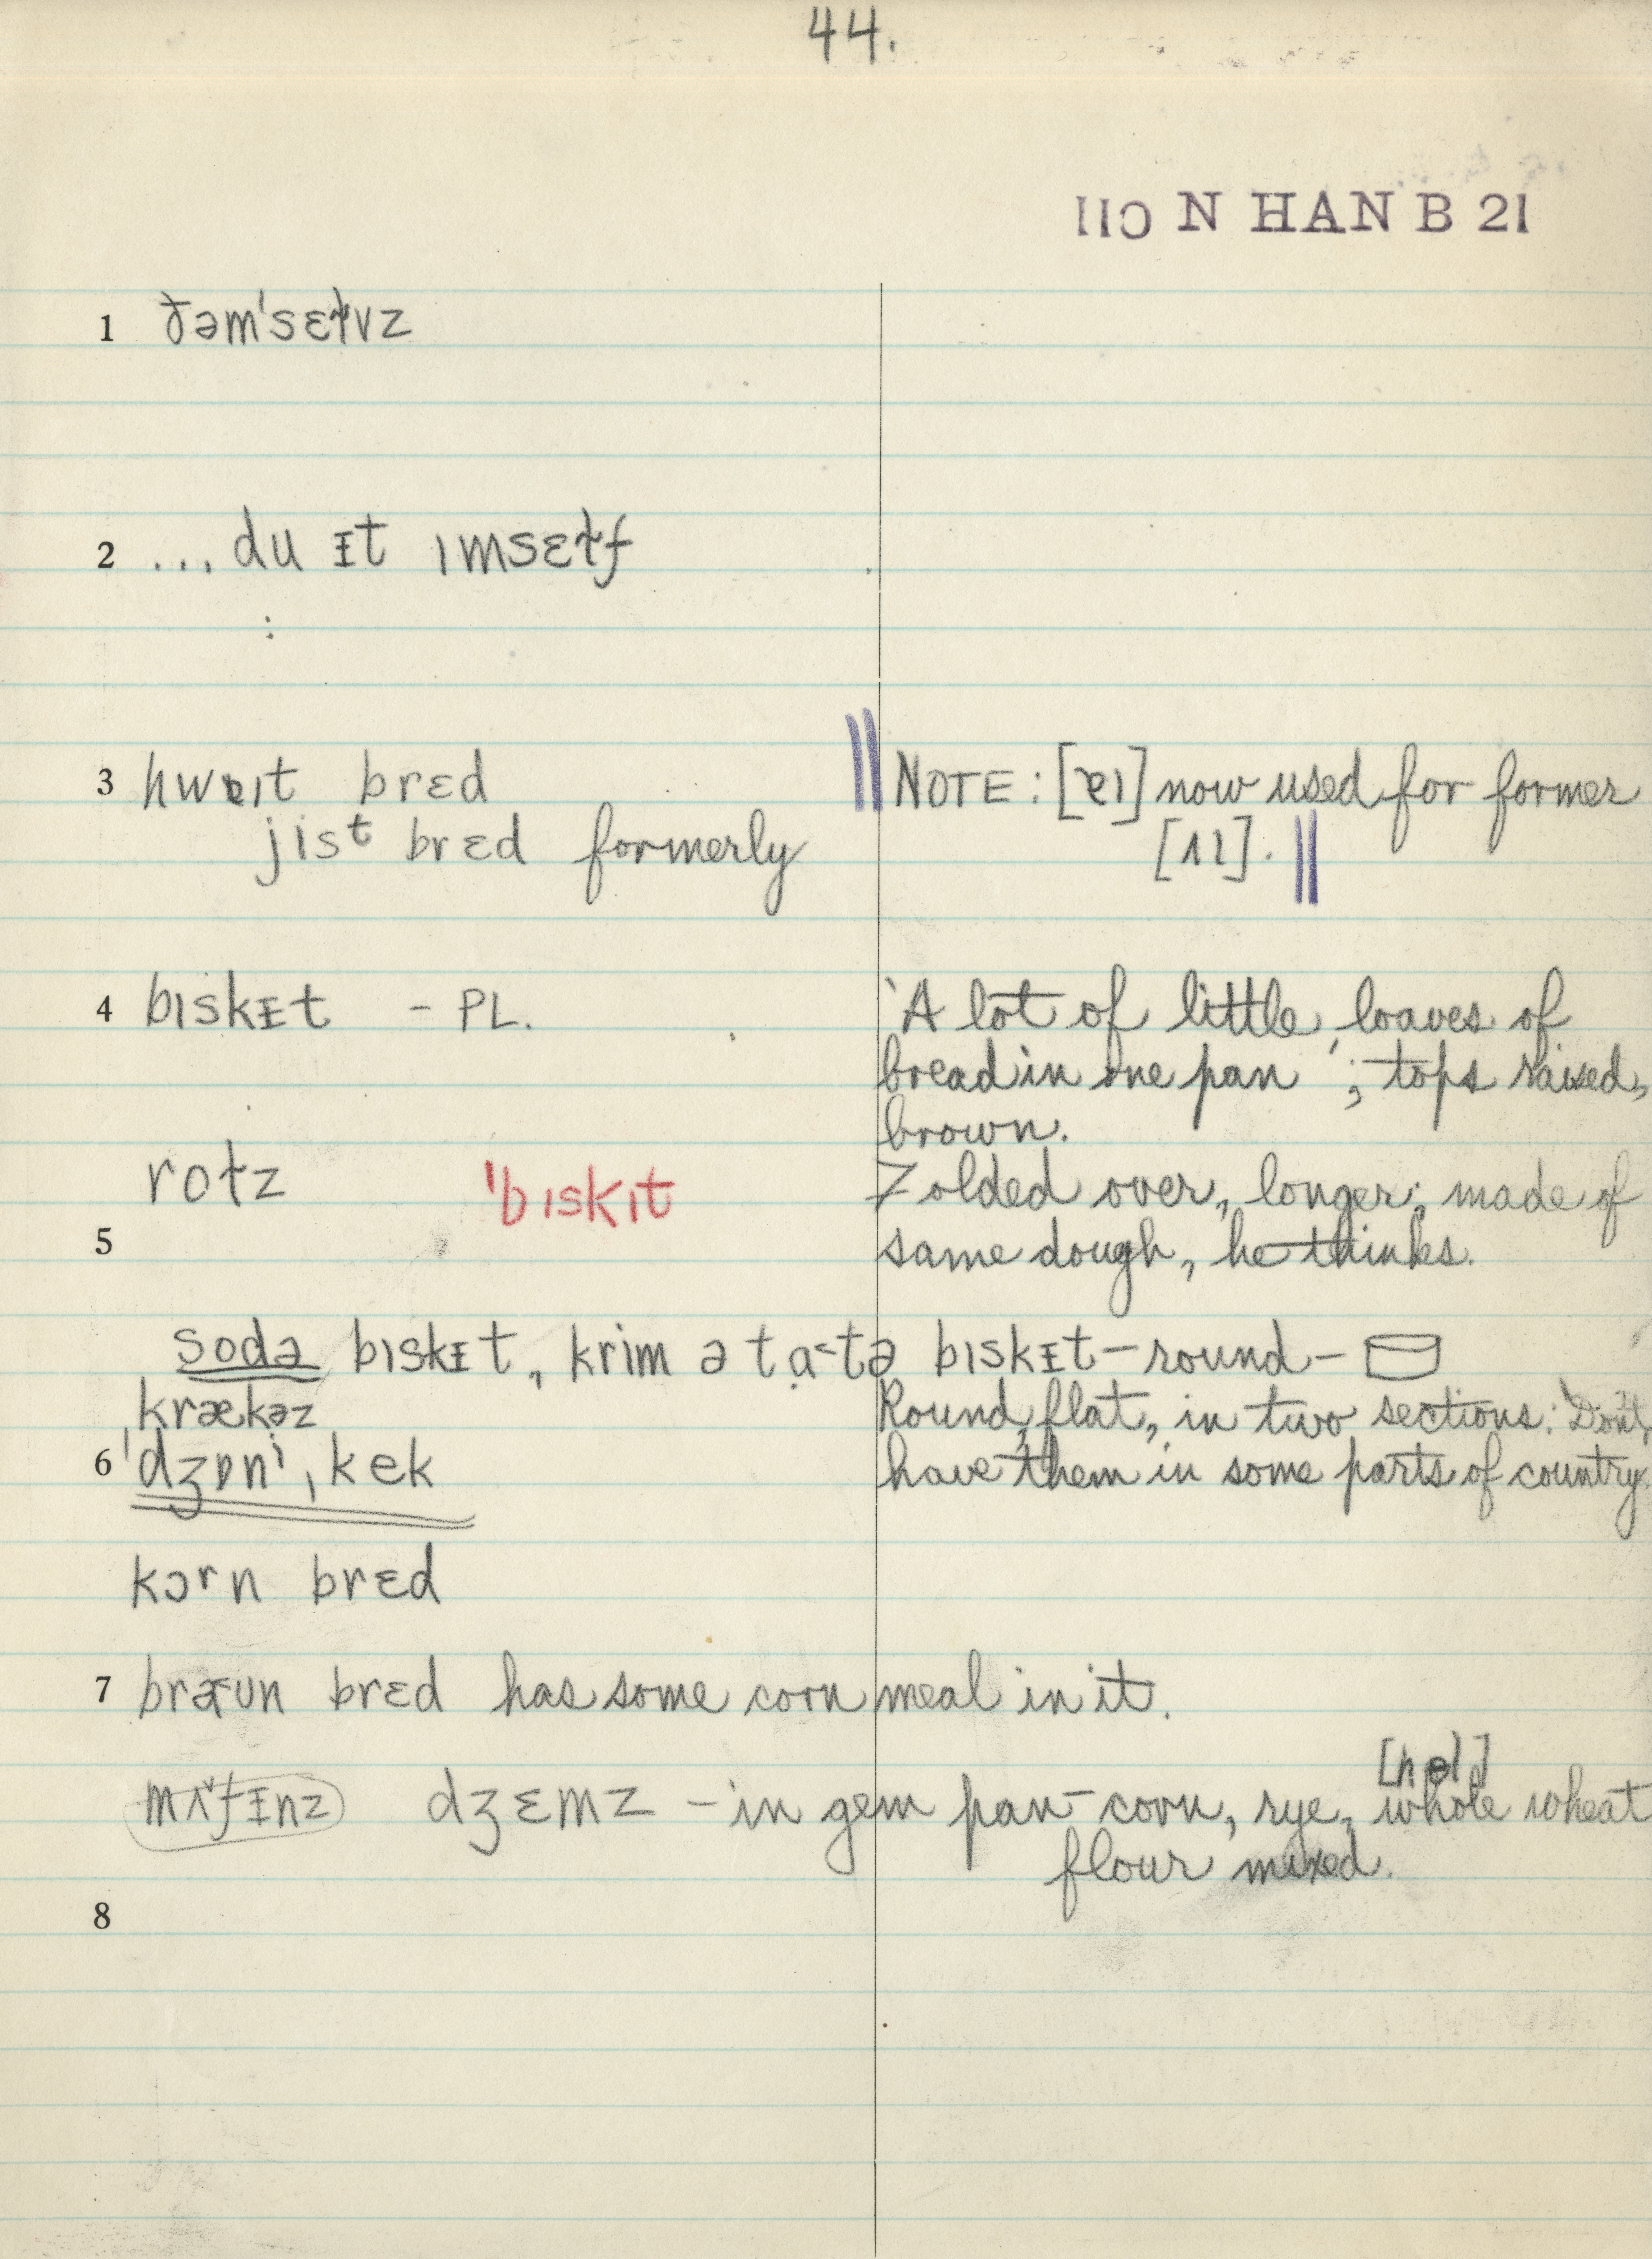 44.
110 N HAN B 21
1 ðəm'sɛɫvz
2 ... du ɪt ımsɛɫf
3 hwɐıt brɛd NOTE: [ɐı] now used for former
jisᵗ brɛd formerly [ʌı].
4 bıskɪt - PL. 'A lot of little loaves of
bread in one pan'; tops raised,
brown.
roɫz 'bıskıt Folded over, longer; made of
5 same dough, he thinks.
soda bıskɪt, krim ə tạ˂tə bıskɪt - round -
krækəz Round, flat, in two sections. Don't
6 'dʒɒnⁱ, kek have them in some parts of country.
kɔʳn brɛd
7 bræ˕ʊn brɛd has some corn meal in it.
[hɵl]
mʌ̌fɪnz dʒɛmz - in gem pan - corn, rye, whole wheat
flour mixed.
8